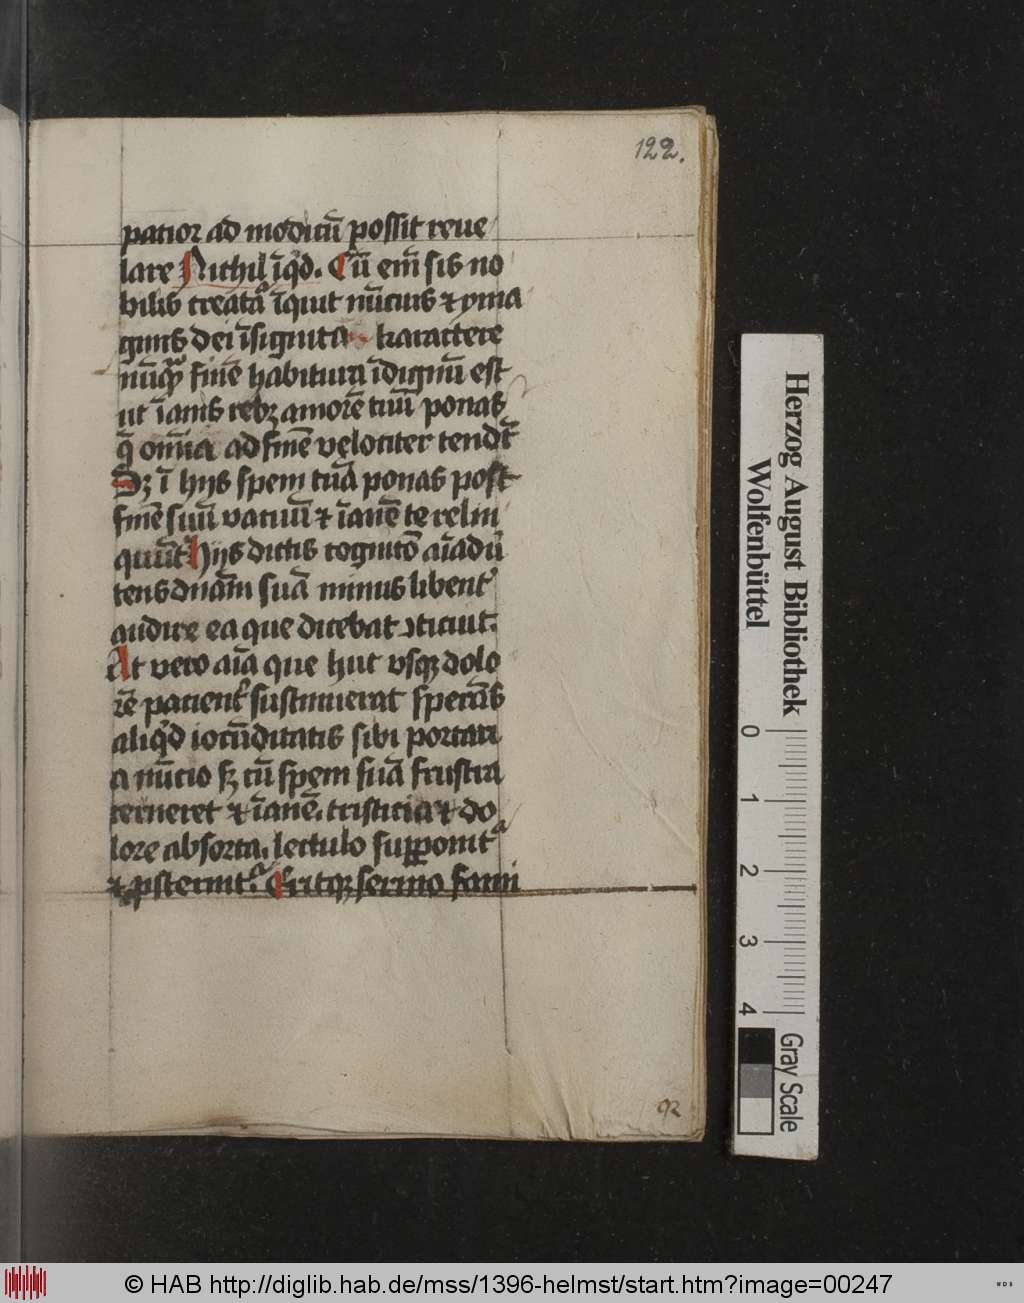 122.
patior ad modicū possit reue
lare Nichil īq̇d. Cū em̄ sis no
bilis creatᷓa īquit nūcius ⁊ yma
ginis dei īsignita karactere
nūqᷓ finē habitura īdignū est
ut īanis rebꝫ amorē tuū ponas
q̄ om̄ia ad finē velociter tendt̄
Sꝫ ī hijs spem tuā ponas post
finē suū vacuū ⁊ īanē te relin
quūt Hijs dictis cognitō aīaduͥ
tens dn̄am suā minus libent᷒
audire ea que dicebat ↄticuit.
At vero aīa que huc usqꝫ dolo
rē pacient᷒ sustinuerat sperās
aliq̇d iocūditatis sibi portari
a nūcio sꝫ cū spem suā frustra
cerneret ⁊ īanē. tristicia ⁊ do
lore absorta. lectulo supponitᷓ
⁊ ꝓsternitᷓ. Eritqꝫ sermo fami
92
Herzog August Bibliothek
Wolfenbüttel
0 1 2 3 4
Gray Scale
© HAB http://diglib.hab.de/mss/1396-helmst/start.htm?image=00247
WDB